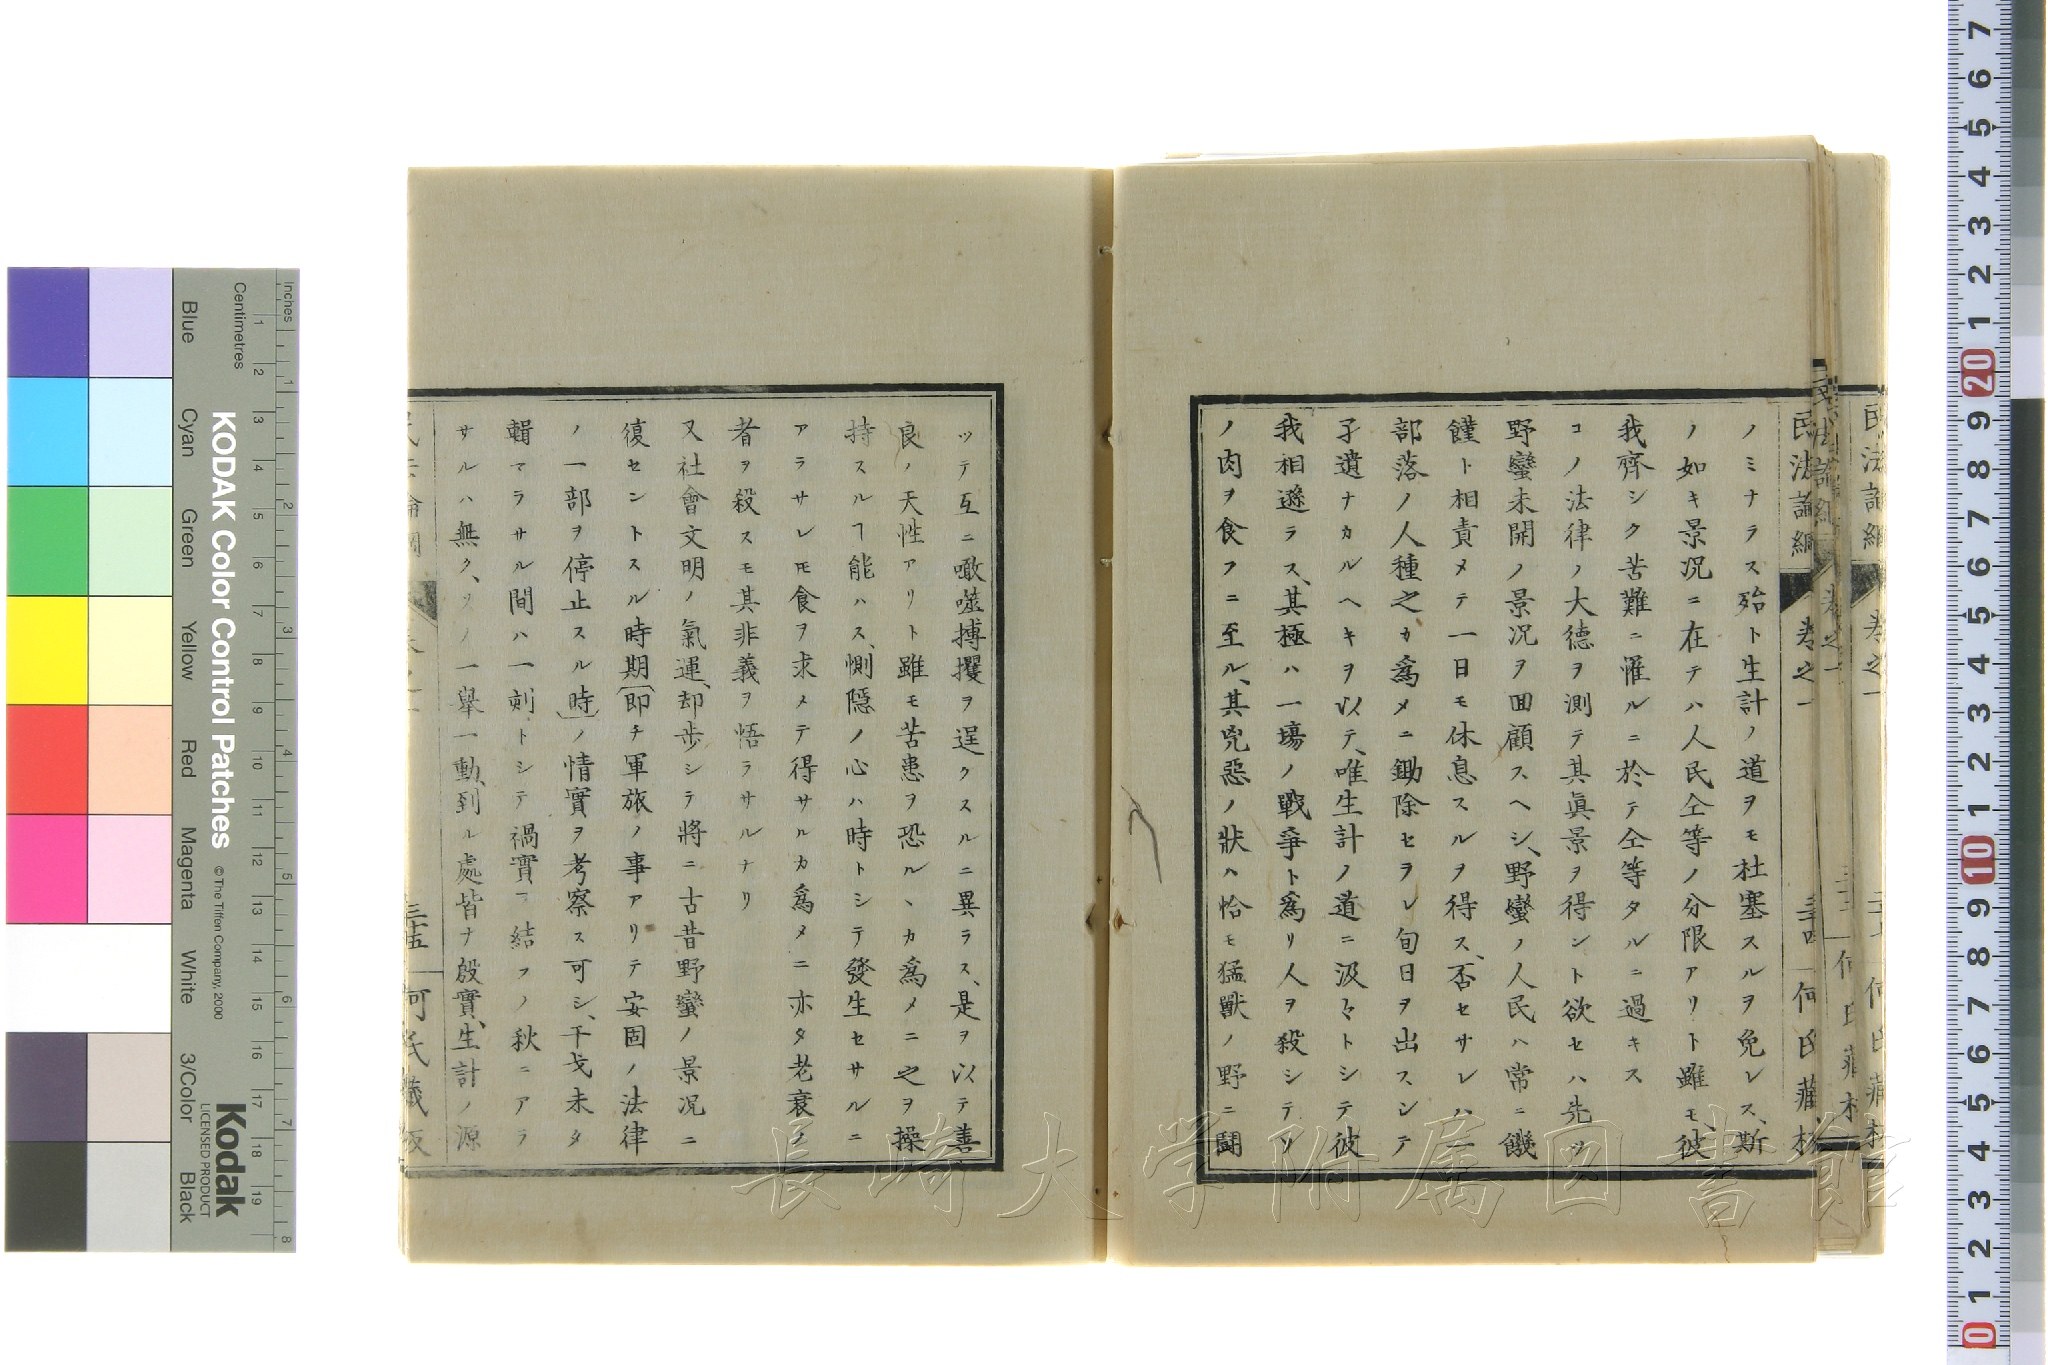 ノミナラス殆ト生計ノ道ヲモ杜塞スルヲ免レス、斯
ノ如キ景况ニ在テハ人民仝等ノ分限アリト雖モ、彼
我齊シク苦難ニ罹ルニ於テ仝等タルニ過キス
コノ法律ノ大德ヲ測テ其眞景ヲ得ント欲セハ先ツ
野蠻未開ノ景况ヲ回顧スヘシ、野蠻ノ人民ハ常ニ饑
饉ト相責メテ一日モ休息スルヲ得ス、否セサレハ一
部落ノ人種之カ爲メニ鋤除セラレ旬日ヲ出スシテ
孑遺ナカルヘキヲ以テ、唯生計ノ道ニ汲々トシテ彼
我相遜ラス、其極ハ一塲ノ戰爭ト爲リ人ヲ殺シテソ
ノ肉ヲ食フニ至ル、其兇惡ノ狀ハ恰モ猛獸ノ野ニ鬪
ッテ互ニ噉噬搏攫ヲ逞クスルニ異ラス、是ヲ以テ善
良ノ天性アリト雖モ苦患ヲ恐ルヽカ爲メニ之ヲ操
持スルヿ能ハス、惻隱ノ心ハ時トシテ發生セサルニ
アラサレ𪜈食ヲ求メテ得サルカ爲メニ亦タ老衰ノ
者ヲ殺スモ其非義ヲ悟ラサルナリ
又社會文明ノ氣運、却步シテ將ニ古昔野蠻ノ景况ニ
復セントスル時期(即チ軍旅ノ事アリテ安固ノ法律
ノ一部ヲ停止スル時)ノ情實ヲ考察ス可シ、干戈未タ
輯マラサル間ハ一刻トシテ禍實ヲ結フノ秋ニアラ
サルハ無ク、ソノ一舉一動、到ル處皆ナ殷實、生計ノ源
民法論綱 卷之一 三十四 何氏藏板
三十五 何氏藏板
KODAK Color Control Patches
© The Tiffen Company, 2000
Kodak
LICENSED PRODUCT
Inches
Centimetres
Blue
Cyan
Green
Yellow
Red
Magenta
White
3/Color
Black
長崎大学附属図書館